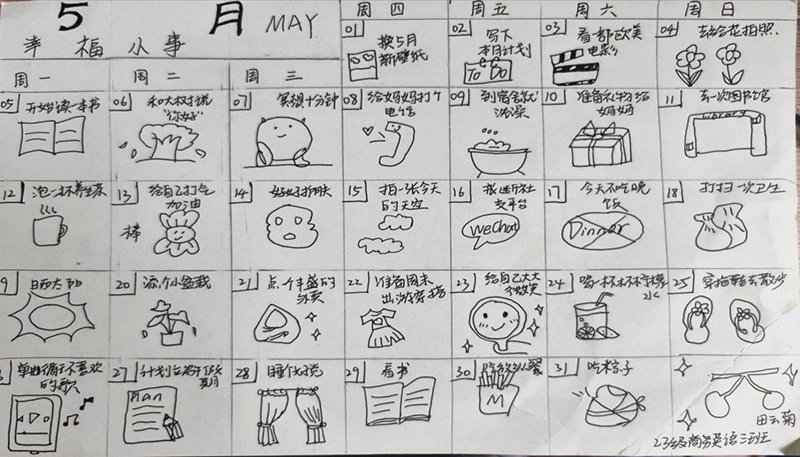 5月 MAY
幸福小事
周四 周五 周六 周日
周一 周二 周三
01 换5月
新壁纸
02 写下
本月计划
To Do
03 看一部欧美
电影
04 去给花拍照
05 开始读一本书
06 和大树说
"你好"
07 冥想十分钟
08 给妈妈打个
电话
09 到宿舍就
洗澡
10 准备礼物给
妈妈
11 去一次图书馆
Library
12 泡一杯养生茶
13 给自己打气
加油
棒
14 好好护肤
15 拍一张今天
的天空
16 戒断社
交平台
WeChat
17 今天不吃晚
饭
Dinner
18 打扫一次卫生
9 晒太阳
20 添个小盆栽
21 点个丰盛的
外卖
22 准备周末
出游穿搭
23 给自己大大
微笑
24 喝一杯柠檬
水
25 穿拖鞋去散步
单曲循环喜欢
的歌
27 计划
Plan
28 睡个懒觉
29 看书
30 吃
M
31 吃粽子
田云菊
23级商务英语三班